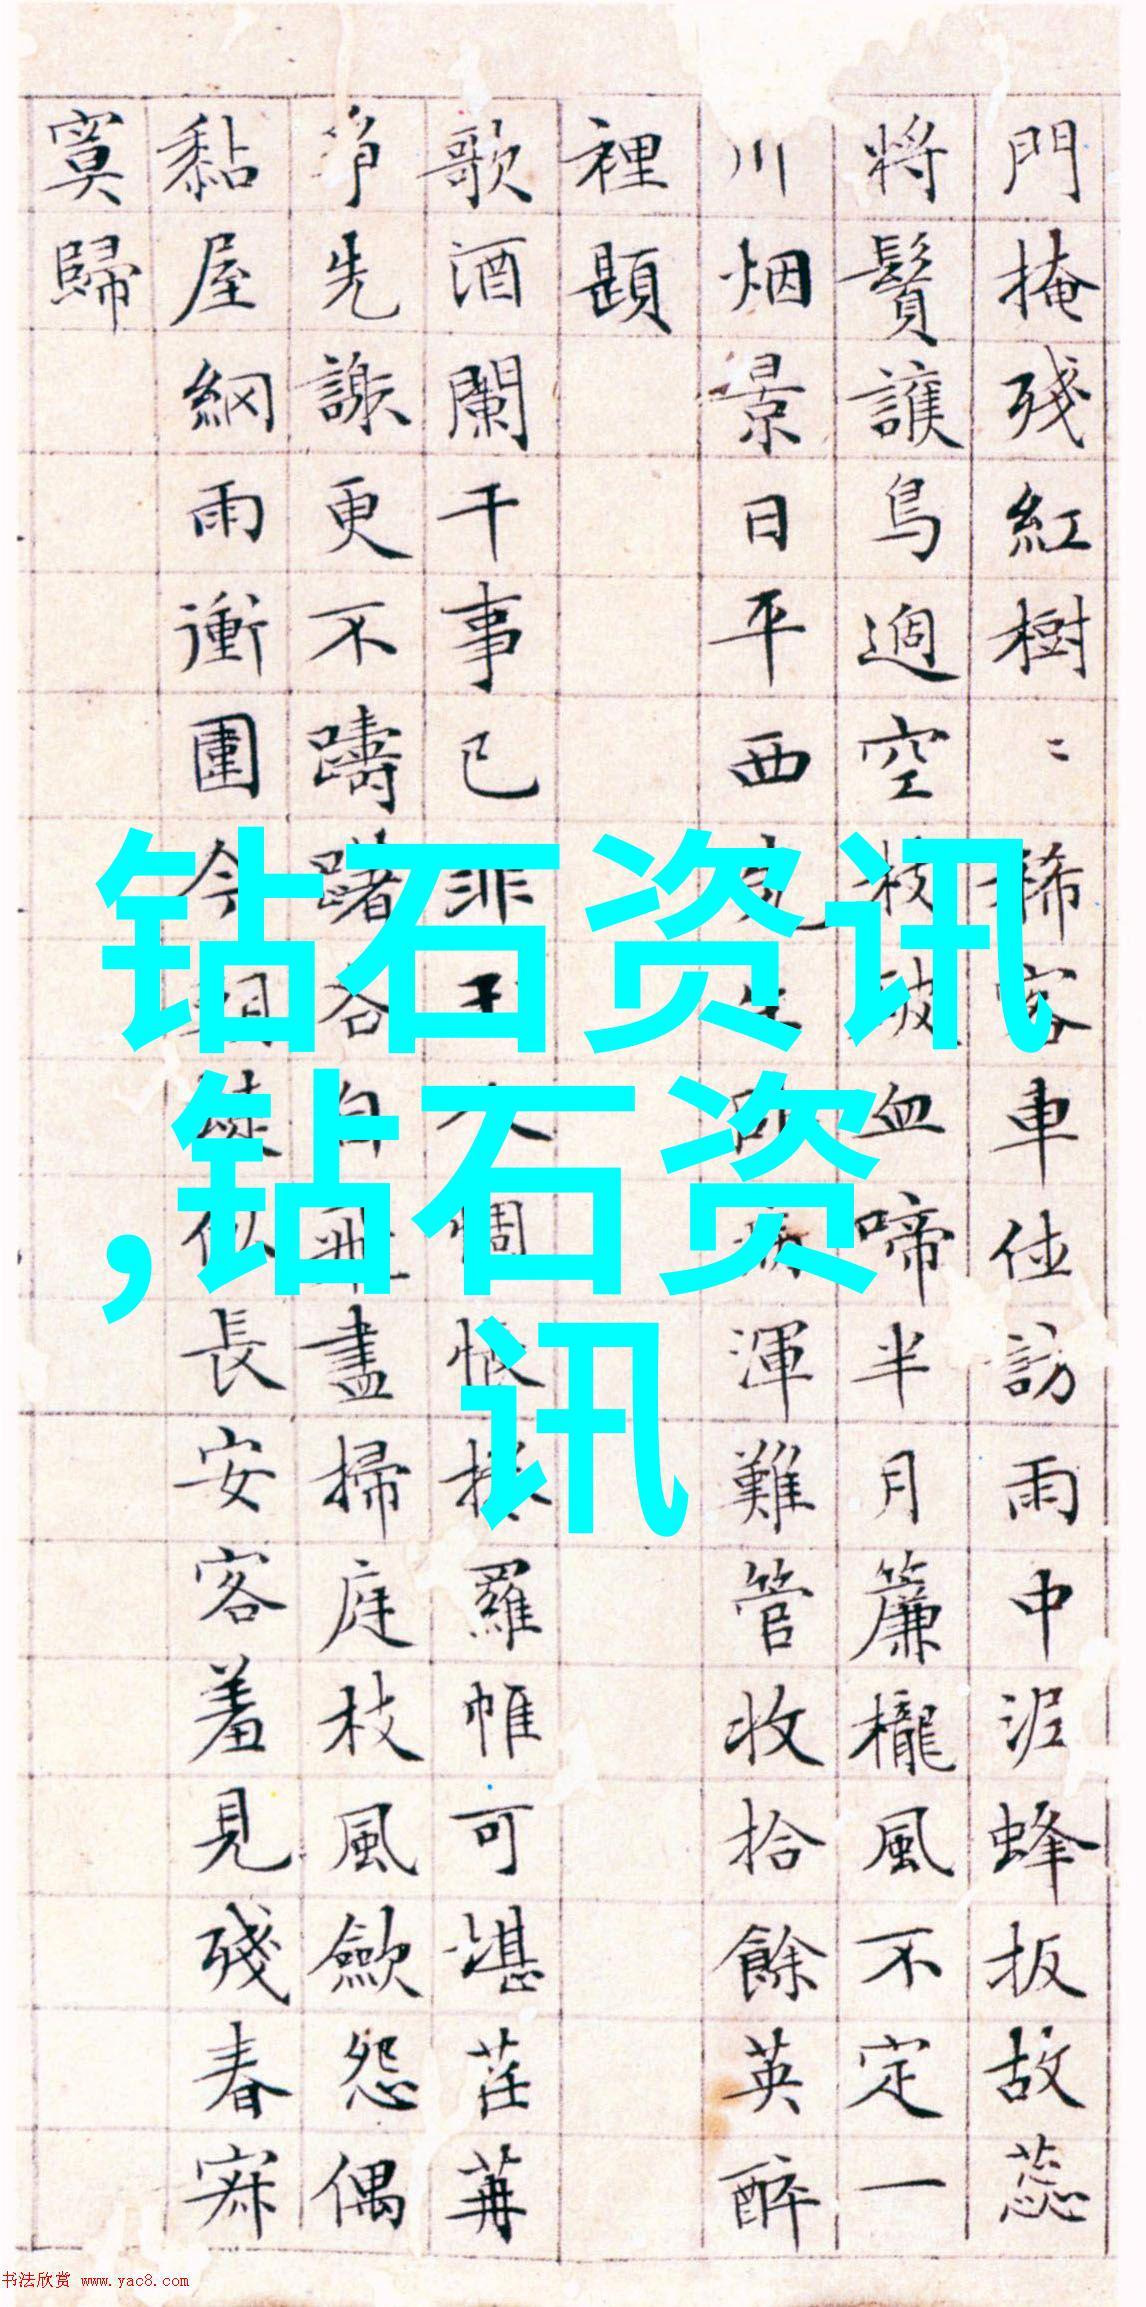 門掩殘紅樹〻稀客車位訪雨中泥蜂扳故蕊
將鬢護鳥過空枝破血啼半月簾櫳風不定一
川烟景日平西 病渾難管收拾餘英醉
裡題
歌酒闌干事已非 惆悵 羅帷可堪荏苒
爭先謝更不躊躇各自飛盡掃庭枝風歛怨偶
黏屋網雨衝圍今朝 似長安客羞見殘春寂
寞歸
钻石资讯
,钻石资
讯
书法欣赏 www.yac8.com